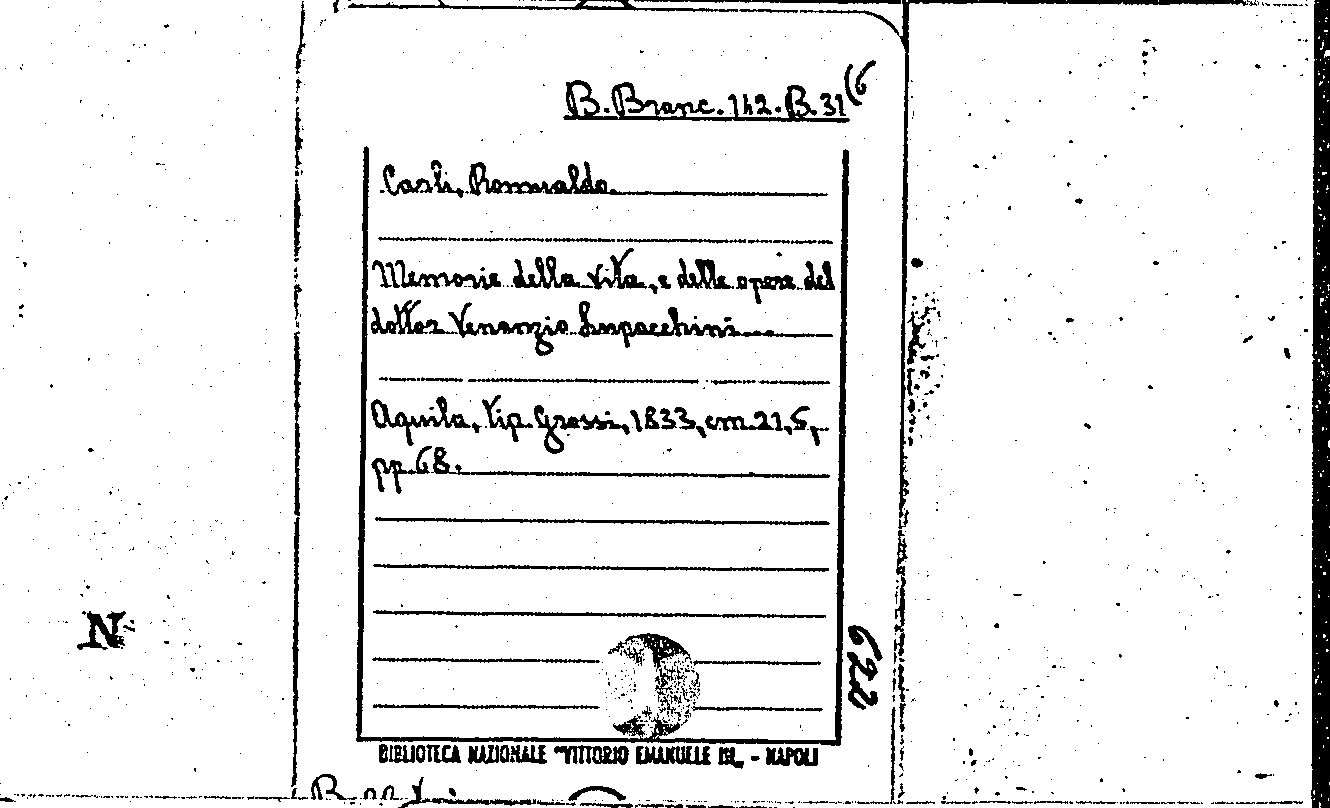 B. Branc. 142. B. 31(6
Carli, Romualdo
Memorie della vita, e delle opere del
dottor Venanzio Lupacchini...
Aquila, tip. Grossi, 1833, cm. 21,5,
pp. 68.
622
N
BIBLIOTECA NAZIONALE "VITTORIO EMANUELE III„ - NAPOLI